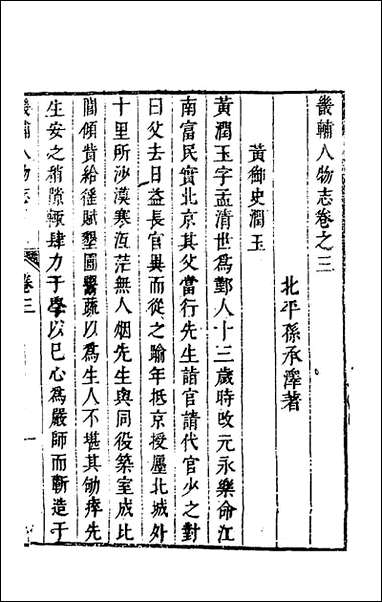 畿輔人物志卷之三
北平孫承澤著
黃御史潤玉
黃潤玉字孟清世為鄞人十三歲時改元永樂命江
南富民實北京其父當行先生詣官請代官少之對
曰父去日益長官異而從之踰年抵京授廛北城外
十里所沙漠寒沍茫無人烟先生與同役築室成比
閭傾貲給徭賦墾圃鬻蔬以為生人不堪其劬瘁先
生安之稍隙輒肆力于學以已心為嚴師而斬造于
畿輔人物志
卷三
一